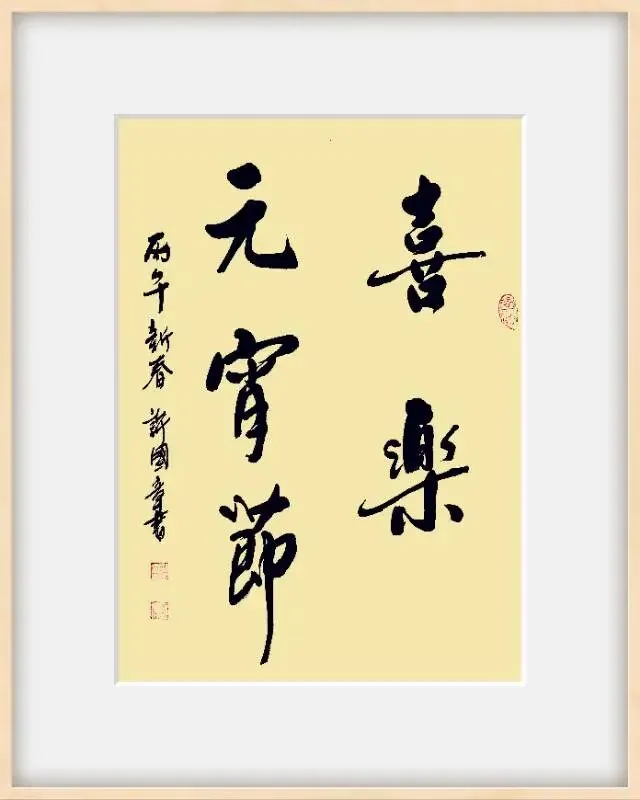 喜樂
元宵節
丙午新春 許國章書